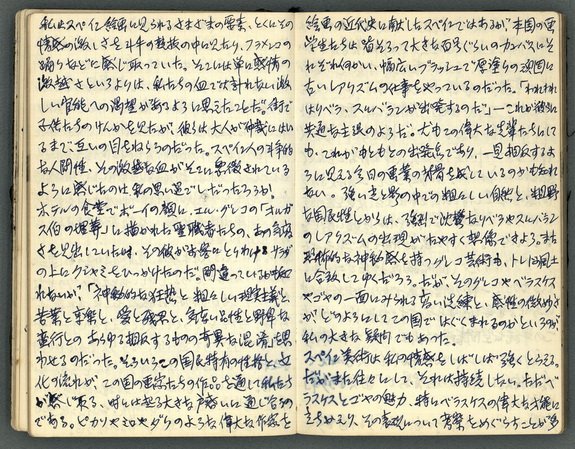 私はスペイン絵画に見られるさまざまの要素、とくにその
情感の激しさを斗牛の熱狂の中に見たり、フラメンコの
踊りなどに感じ取っていた。そこには単に感情の
激越さというよりは、私たちの血では計れない激
しい官能への渇望があるように思えたことだ。街で
子供たちのけんかを見たが、彼らは大人が仲裁にはい
るまで互いの目をねらうのだった。スペイン人の斗争的
な人間性、その激越な血がそこに象徴されている
ように感じたのは私の思い過ごしだったろうか。
ホテルの食堂でボーイの顔に、エル・グレコの「オルガ
ス伯の埋葬」に描かれた聖職者たちの、あの高貴
さを見出していた時、その彼がお客にとりわけるサラダ
の上にクシャミをひっかけたのだ。間違っているかも知
れないが、「神秘的な狂熱と粗々しい現実主義と
苦業と享楽と、愛と残忍と、高貴な品性と野卑な
蛮行との あらゆる相反するものの奇異な混淆」を思
わせるのだった。そういうこの国民特有の性格と文
化の流れが、この国の画家たちの作品を通して私たち
が感じ取る、時には起る大きな戸惑いに通じ合うもの
である。ピカソやミロやダリのような偉大な作家を
絵画の近代史に献じたスペインではあるが 本国の画
学生たちは皆そろって大きな百号ぐらいのカンバスにそ
れぞれ向かい、幅広いブラッシュで厚塗りの頑固に
古いレアリズムの仕事をやっているのだった。「われわれ
はリベラ、スルバランが出発するのだ」—これが彼らに
共通な主張のようだ。尤もこの偉大な先輩たちにして
も、これがもともとの出発点であり、一見相反するよ
うに見える今日の画業の背骨を成しているのかも知れ
ない。強い光と影の中での粗々しい自然と、粗野
な国民性とからは、強烈で沈鬱なリベラやスルバラン
のレアリズムの出現がたやすく想像できよう。また
恐怖的な神秘感を持つグレコ芸術も、トレドの風土
に合致してゆくだろう。だが、そのグレコやベラスケス
やゴヤの一面にみられる高い洗練と、感性の微妙さ
がどのようにしてこの国ではぐくまれるのかというのが
私の大きな疑問でもあった。
スペイン美術は私の情感をしばしば強くとらえる。
だがまた往々にして、それは持続しない。ただベ
ラスケスとゴヤの魅力、特にベラスケスの偉大な才能に
立ちかえり、その表現について考察をめぐらすことが多